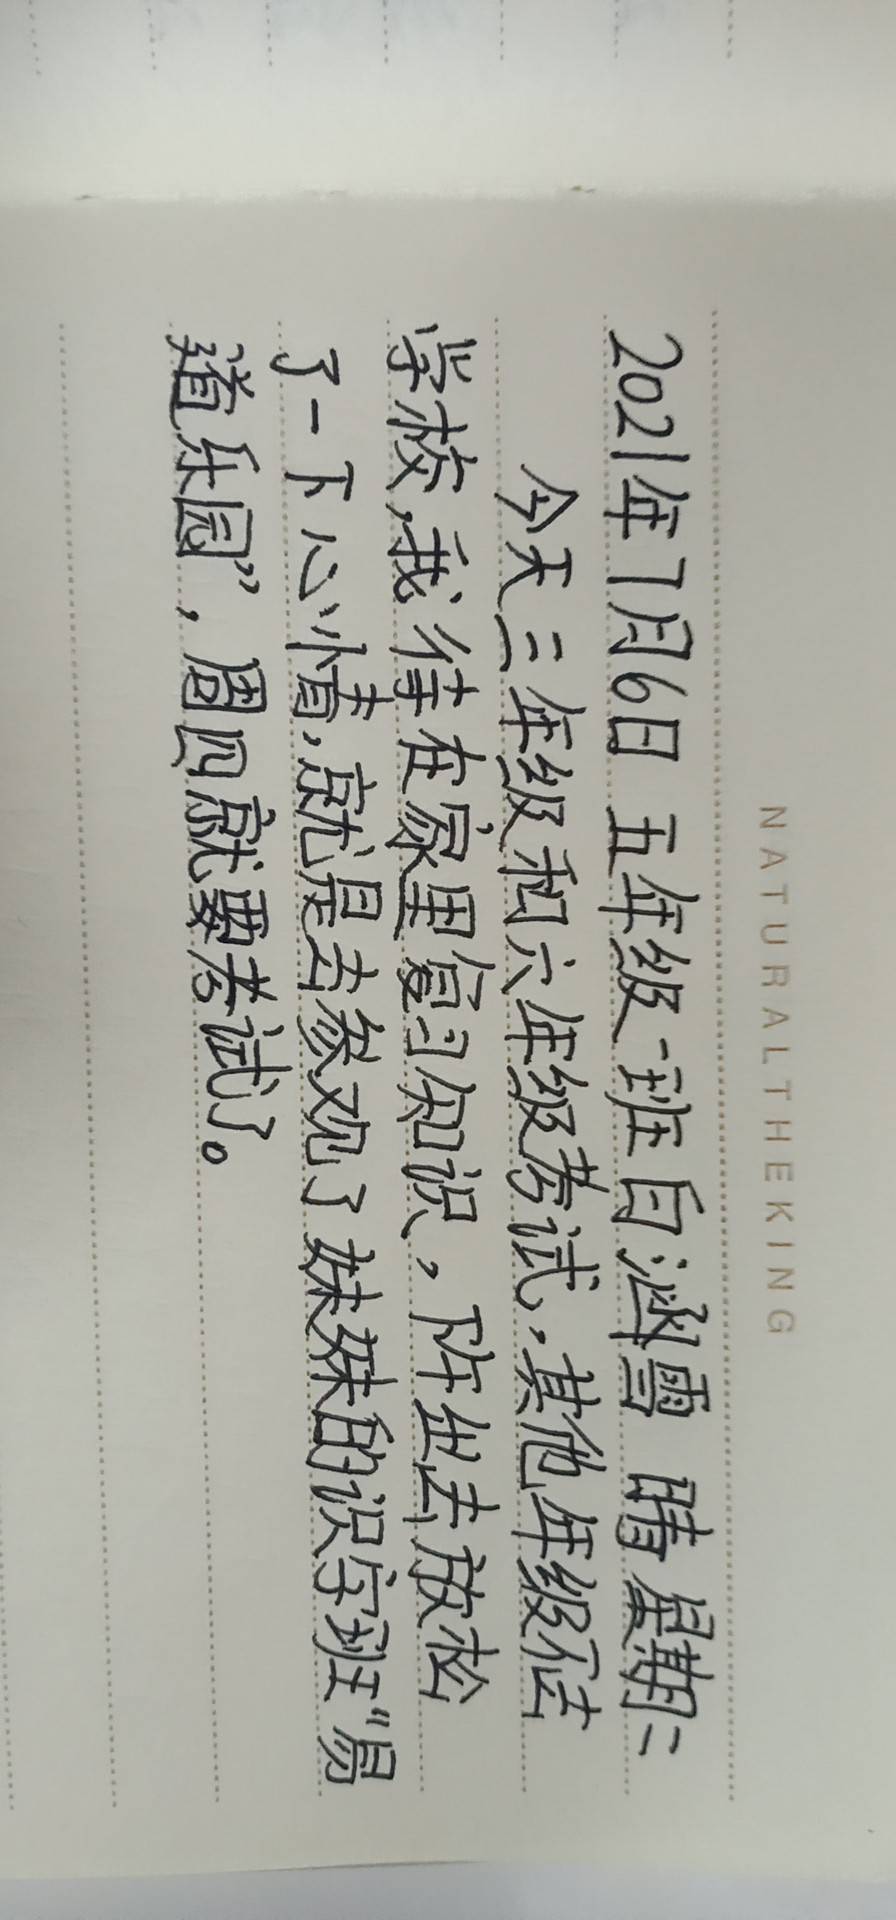 NATURALTHEKING
2021年7月6日 五年级一班白涵雪 晴 星期二
今天三年级和六年级考试,其他年级在
学校,我待在家里复习知识,昨出去放松
了一下心情,就是去参观了妹妹的识字班“易
道乐园”,周四就要考试了。